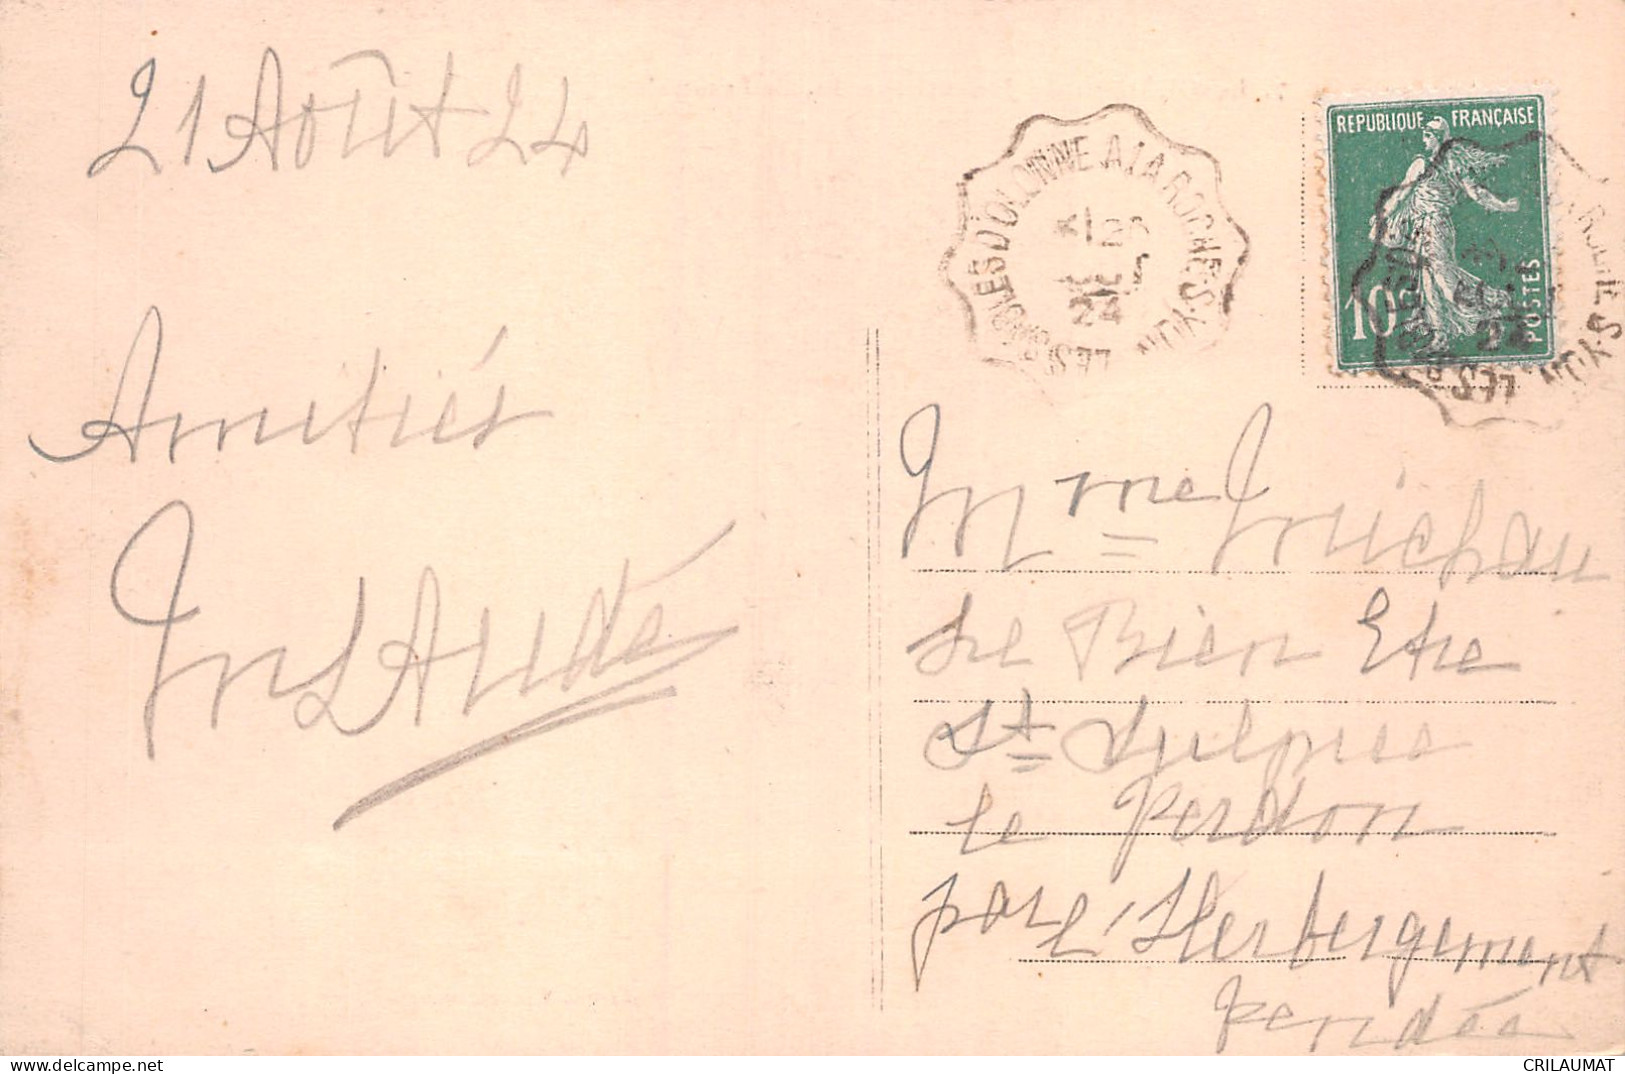 21 Août 24
Amitiés
LES SABLES D'OLONNE A LA ROCHE-S-YON
24
REPUBLIQUE FRANÇAISE
10
POSTES
LES
S-YON
24
Mme Michau
Le Bien Etre
St Sulpice
le Verdon
par l'Herbergement
Vendée
CRILAUMAT